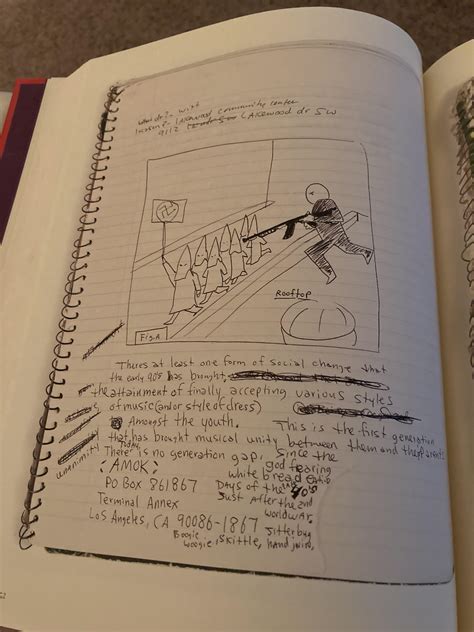 with
Lakewood community center
9112 Lakewood dr SW
Rooftop
Fig. A
Theres at least one form of social change that
the early 90s has brought.
the attainment of finally accepting various styles
of music (and/or style of dress)
Amongst the youth.
This is the first generation
that has brought musical unity between them and
unanimity
There is no generation gap, Since the
god fearing
white bread
Days of the 40's
Just After the 2nd
world war.
Jitterbug
Boogie
woogie, skittle, hand jive,
:AMOK:
PO BOX 861867
Terminal Annex
Los Angeles, CA 90086-1867